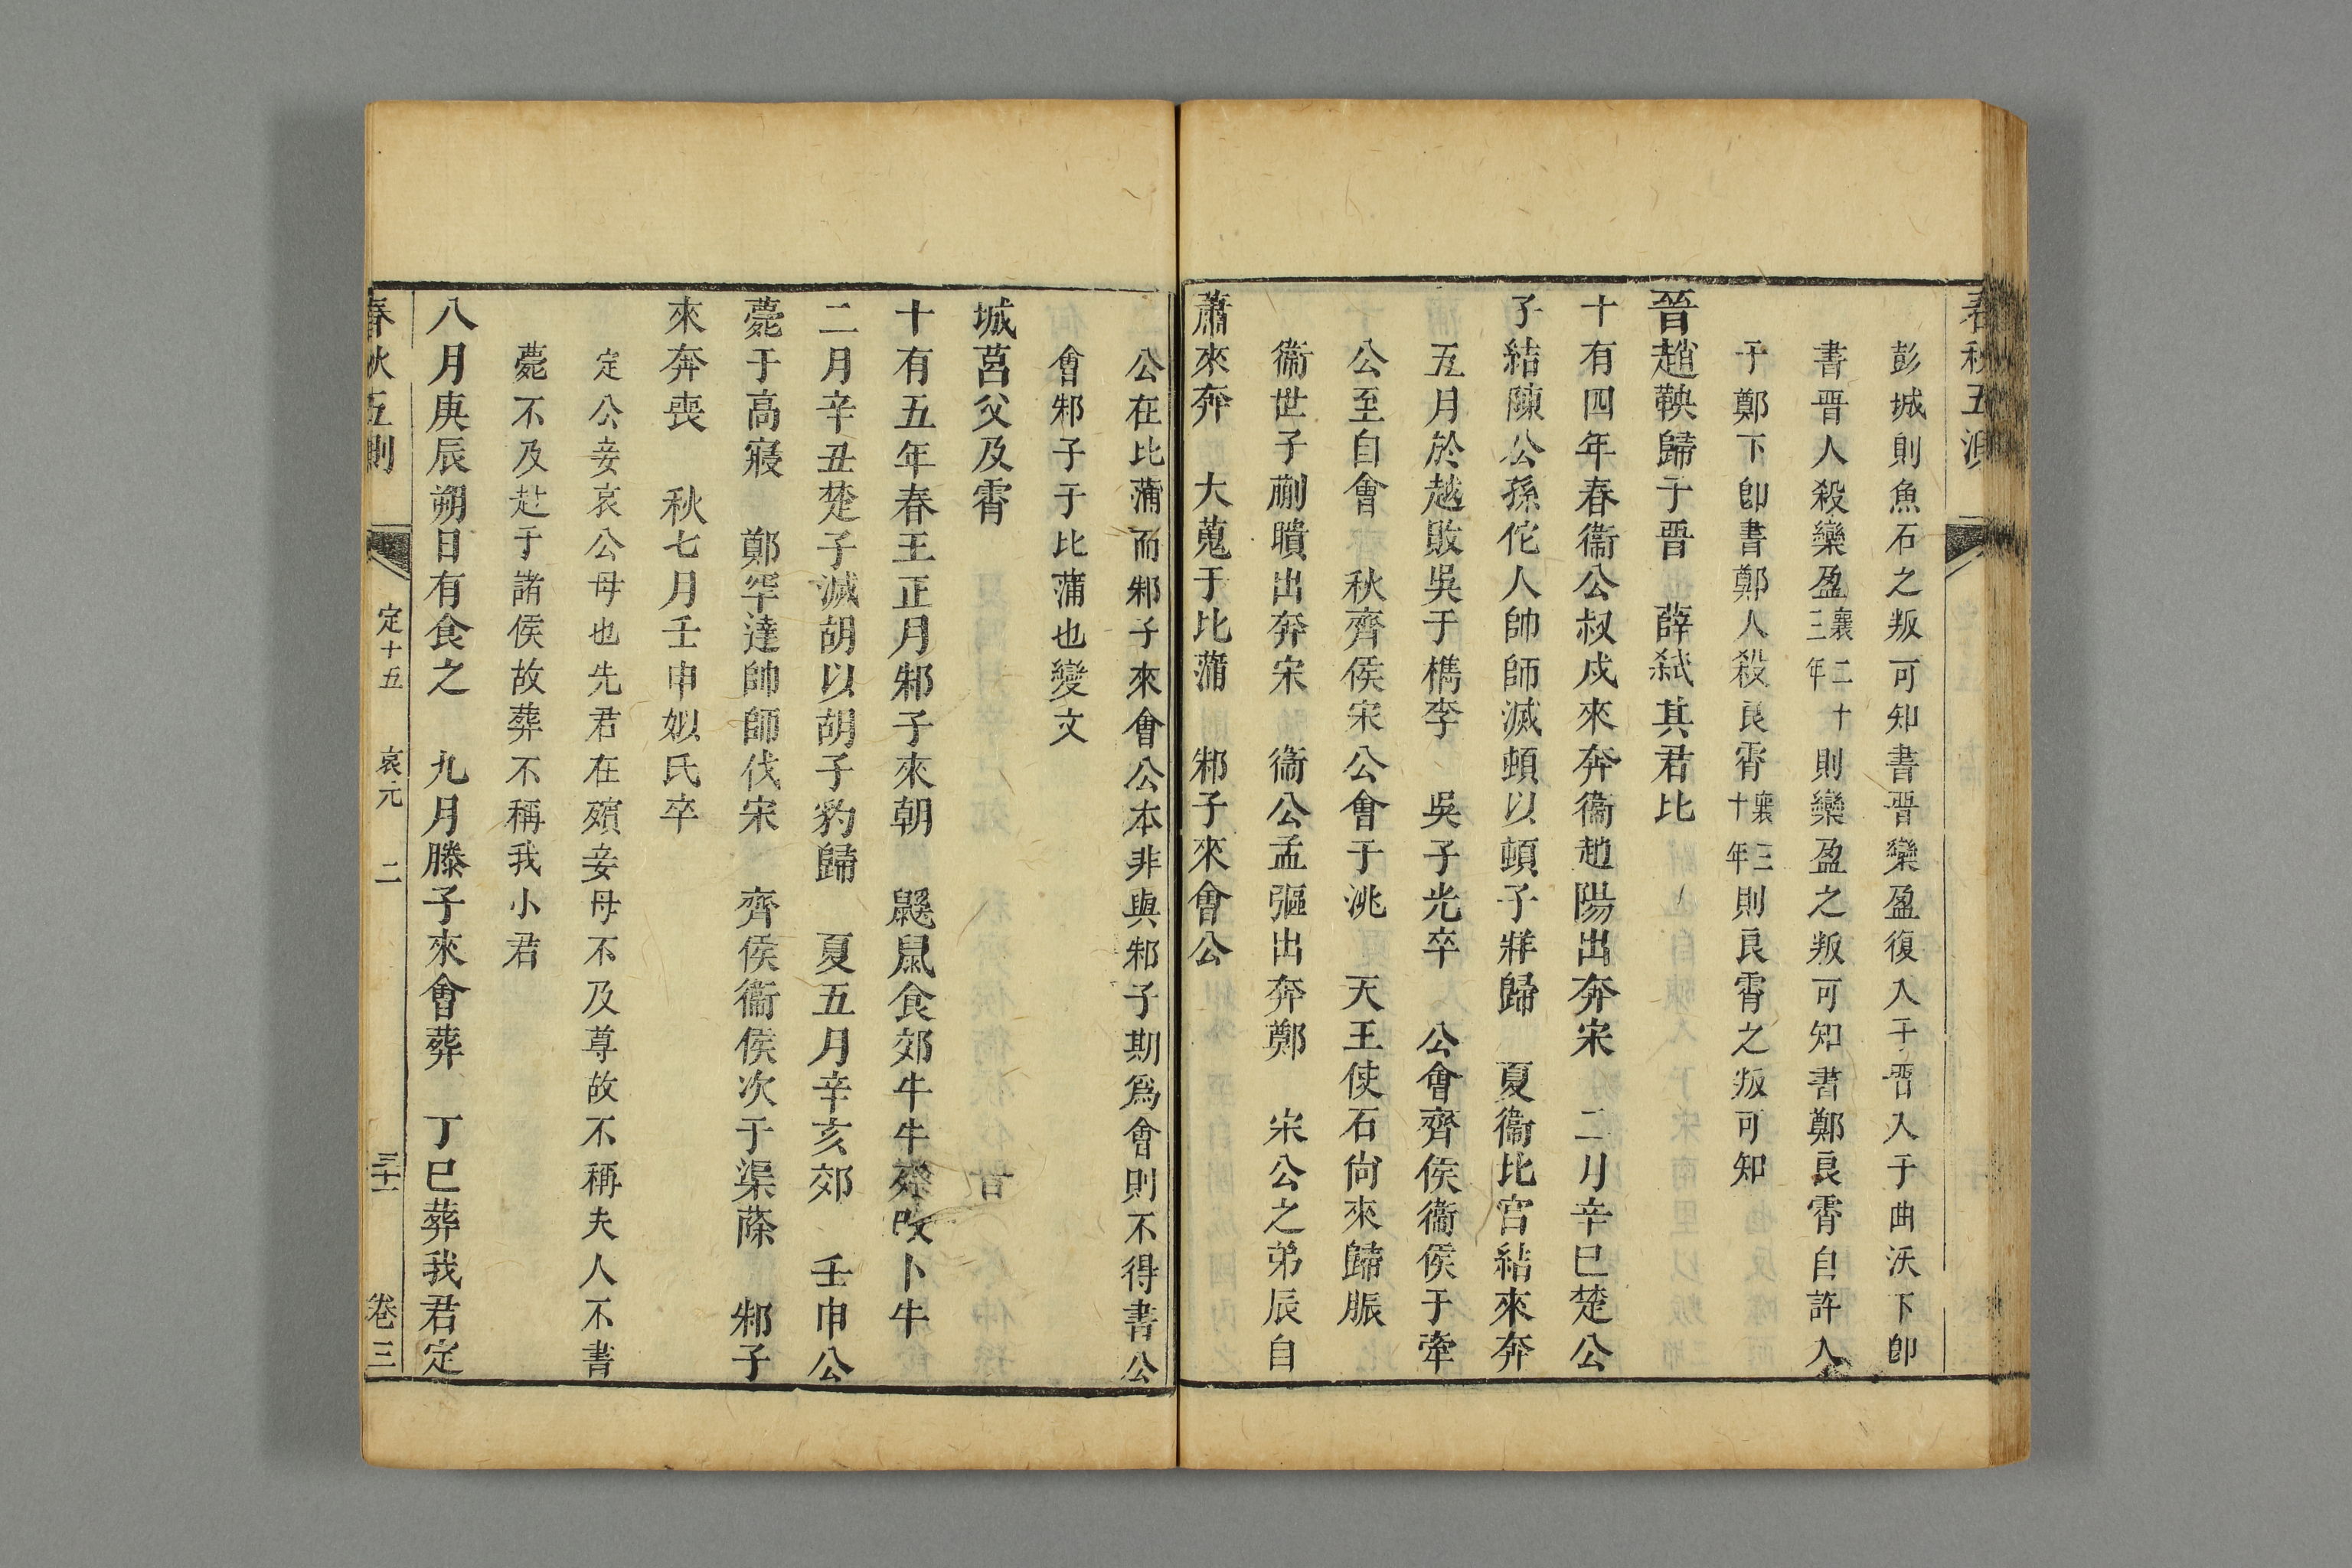 春秋五測
彭城則魚石之叛可知書晋欒盈復入于晋入于曲沃下卽
書晋人殺欒盈襄二十三年則欒盈之叛可知書鄭良霄自許入
于鄭下卽書鄭人殺良霄襄三十年則良霄之叛可知
晉趙鞅歸于晋　薛弒其君比
十有四年春衞公叔戍來奔衞趙陽出奔宋　二月辛巳楚公
子結陳公孫佗人帥師滅頓以頓子牂歸　夏衞北宮結來奔
五月於越敗吳于檇李　吳子光卒　公會齊侯衞侯于牽
公至自會　秋齊侯宋公會于洮　天王使石尙來歸脤
衞世子蒯聵出奔宋　衞公孟彄出奔鄭　宋公之弟辰自
蕭來奔　大蒐于比蒲　邾子來會公
公在比蒲而邾子來會公本非與邾子期爲會則不得書公
會邾子于比蒲也變文
城莒父及霄
十有五年春王正月邾子來朝　鼷鼠食郊牛牛死改卜牛
二月辛丑楚子滅胡以胡子豹歸　夏五月辛亥郊　壬申公
薨于高寢　鄭罕達帥師伐宋　齊侯衞侯次于渠蒢　邾子
來奔喪　秋七月壬申姒氏卒
定公妾哀公母也先君在殯妾母不及尊故不稱夫人不書
薨不及赴于諸侯故葬不稱我小君
八月庚辰朔日有食之　九月滕子來會葬　丁巳葬我君定
春秋五測　定十五　哀元　二　三十一　卷三